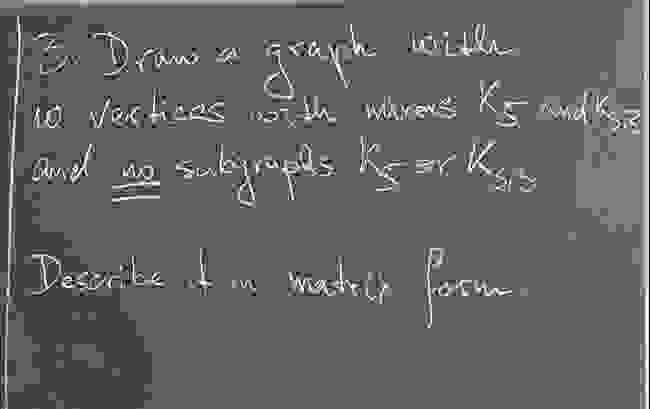 3. Draw a graph with
10 vertices with minors K5 and K3,3
and no subgraphs K5 or K3,3
Describe it in matrix form.